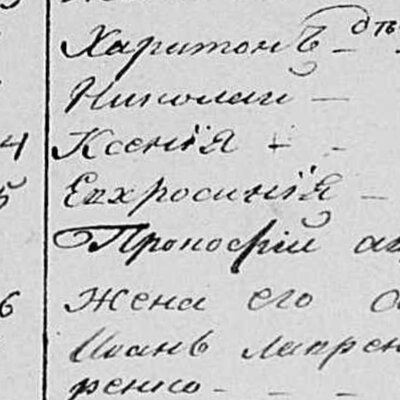 Харитонъ - дѣ-
Николай -
4 Ксенія - -
5 Евхросинія -
Прокофій
6 Жена его
Иванъ Лавре
ренко - - -